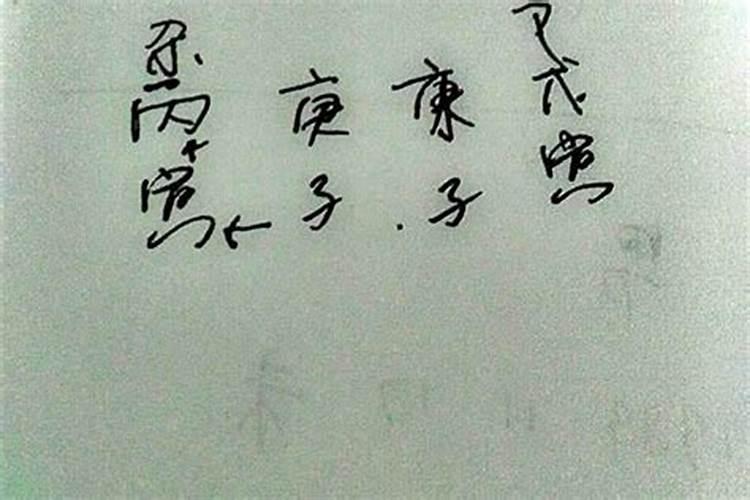 丙 庚 庚 戊
寅 子 子 寅